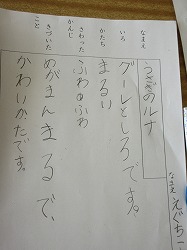 なまえ
うさぎのルナ
いろ
グーレとしろです。
かたち
まるい
さわった
かんじ
ふわふわ
きづいた
こと
めがまんまるで、
かわいかたです。
なまえ えぐち